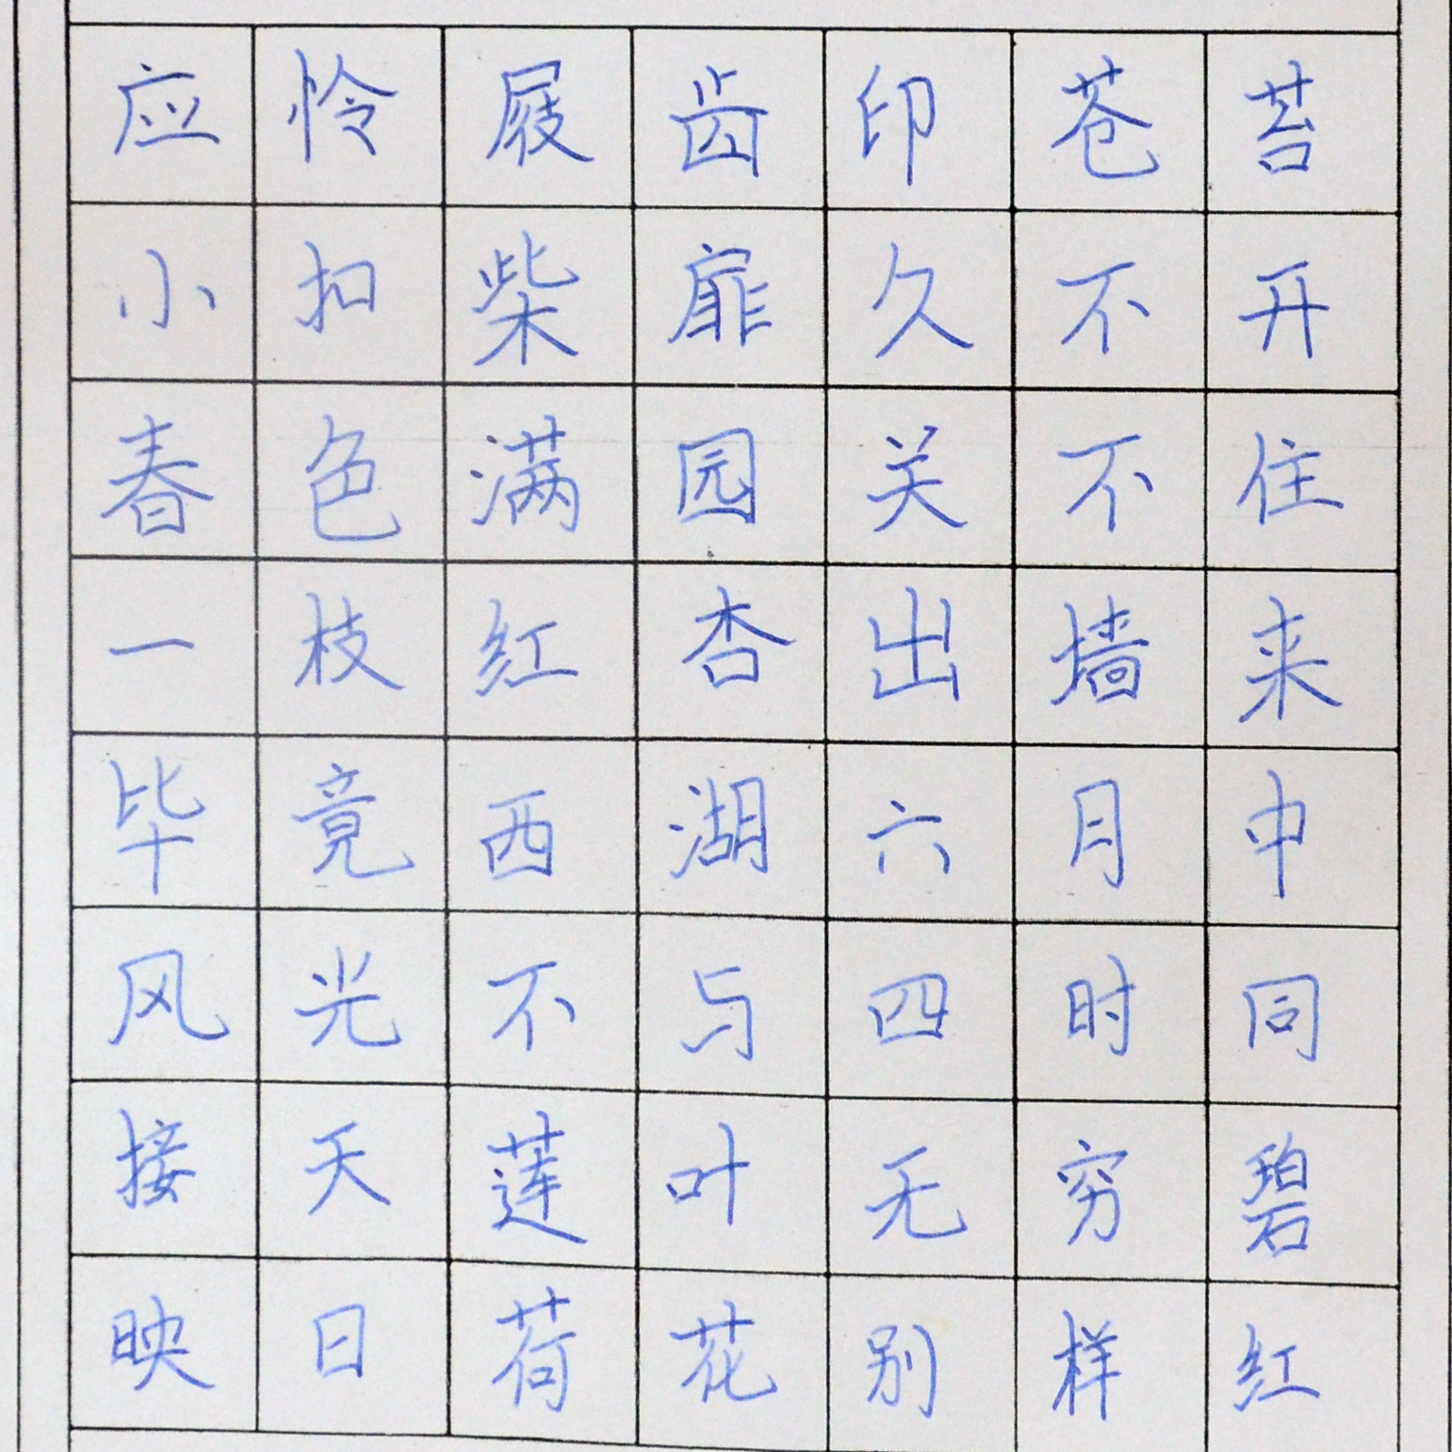 应怜屐齿印苍苔
小扣柴扉久不开
春色满园关不住
一枝红杏出墙来
毕竟西湖六月中
风光不与四时同
接天莲叶无穷碧
映日荷花别样红